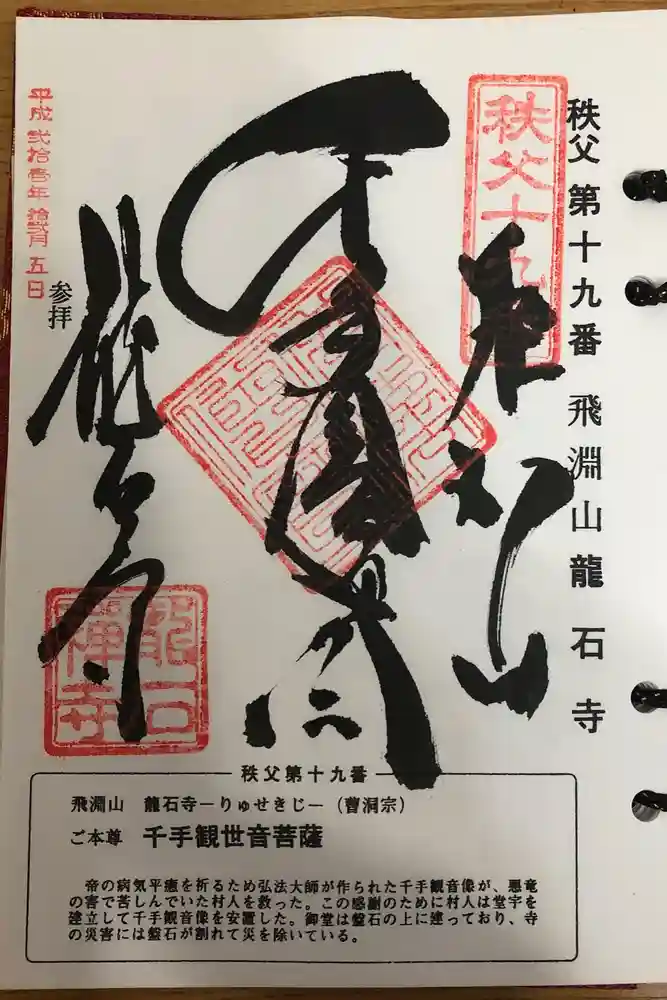 秩父 第十九番 飛淵山龍石寺
秩父十九
奉
千手
龍石寺
参拝
平成弐拾壱年拾弐月五日
龍石禅寺
秩父第十九番
飛淵山 龍石寺ーりゅせきじー(曹洞宗)
ご本尊 千手観世音菩薩
帝の病気平癒を祈るため弘法大師が作られた千手観音像が、悪竜
の害で苦しんでいた村人を救った。この感謝のために村人は堂宇を
建立して千手観音像を安置した。御堂は盤石の上に建っており、寺
の災害には盤石が割れて災を除いている。